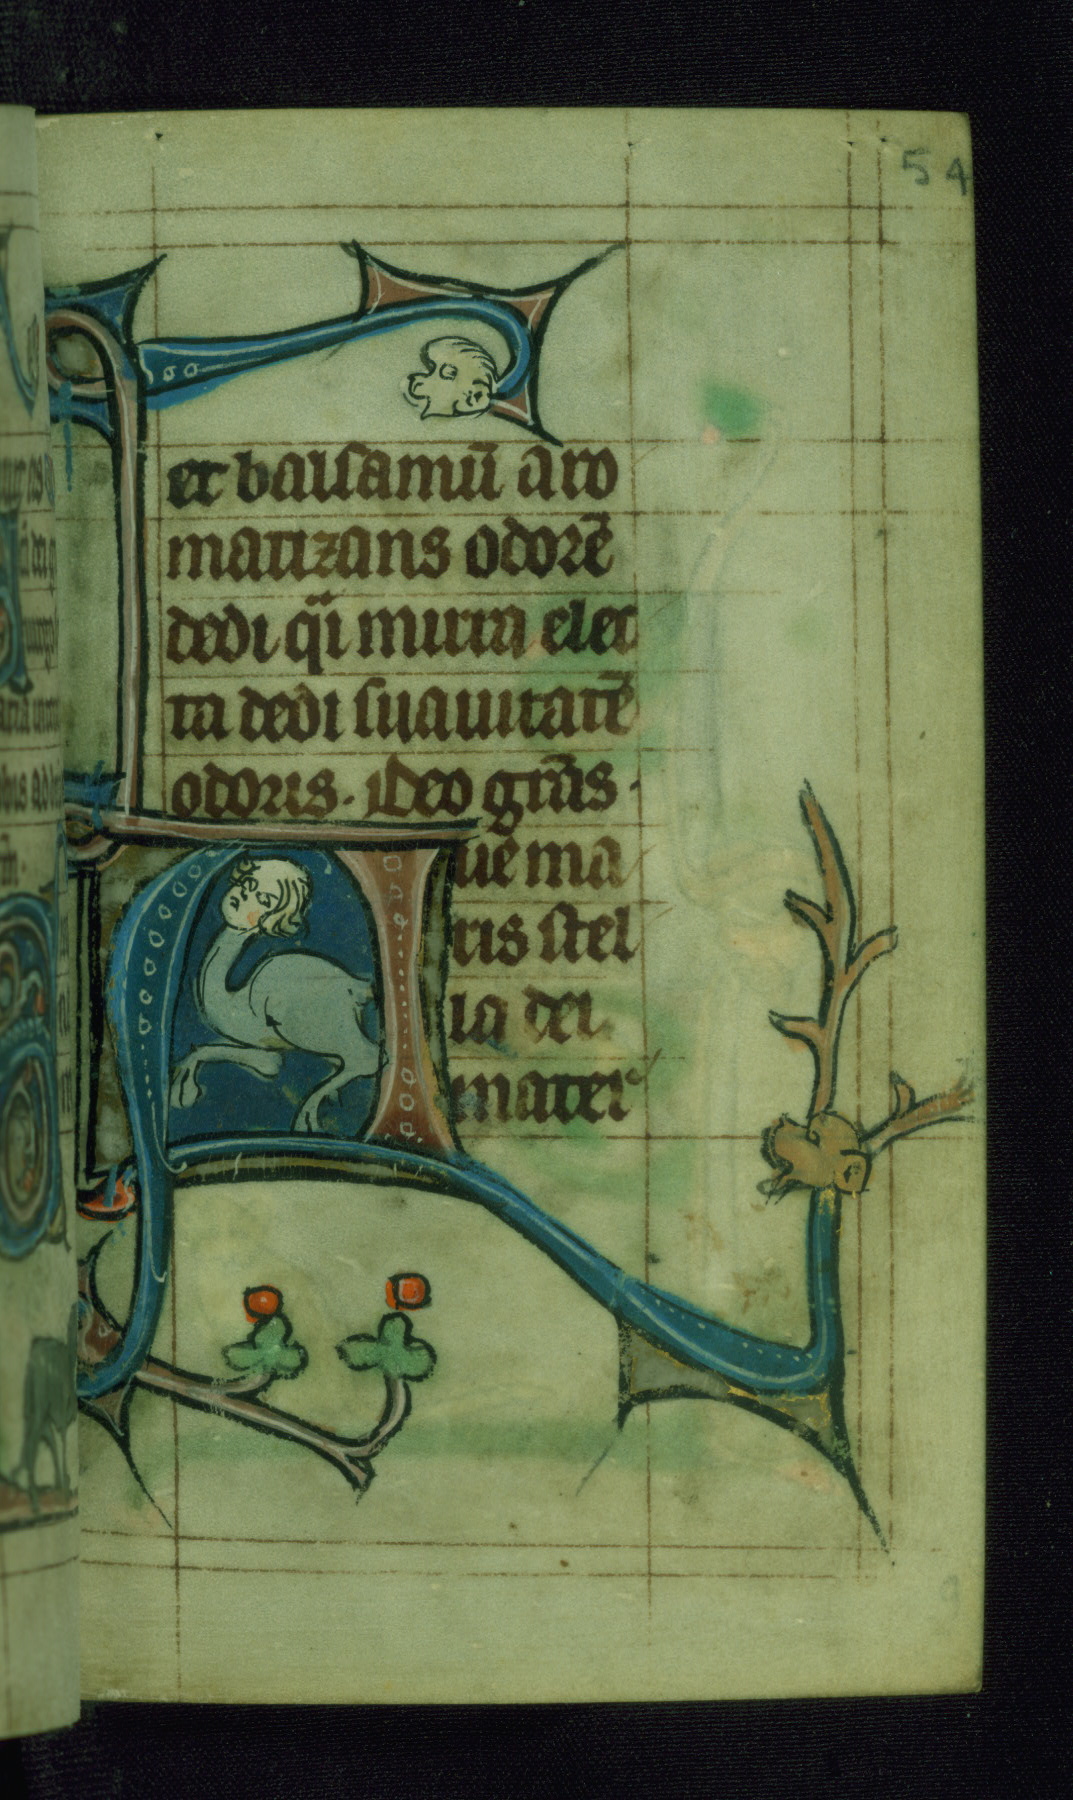 54
et balsamū aro
matizans odorē
dedi q̄i mirra elec
ta dedi suauitatē
odoris. Deo gr̄as.
Aue ma
ris stel
la dei
mater